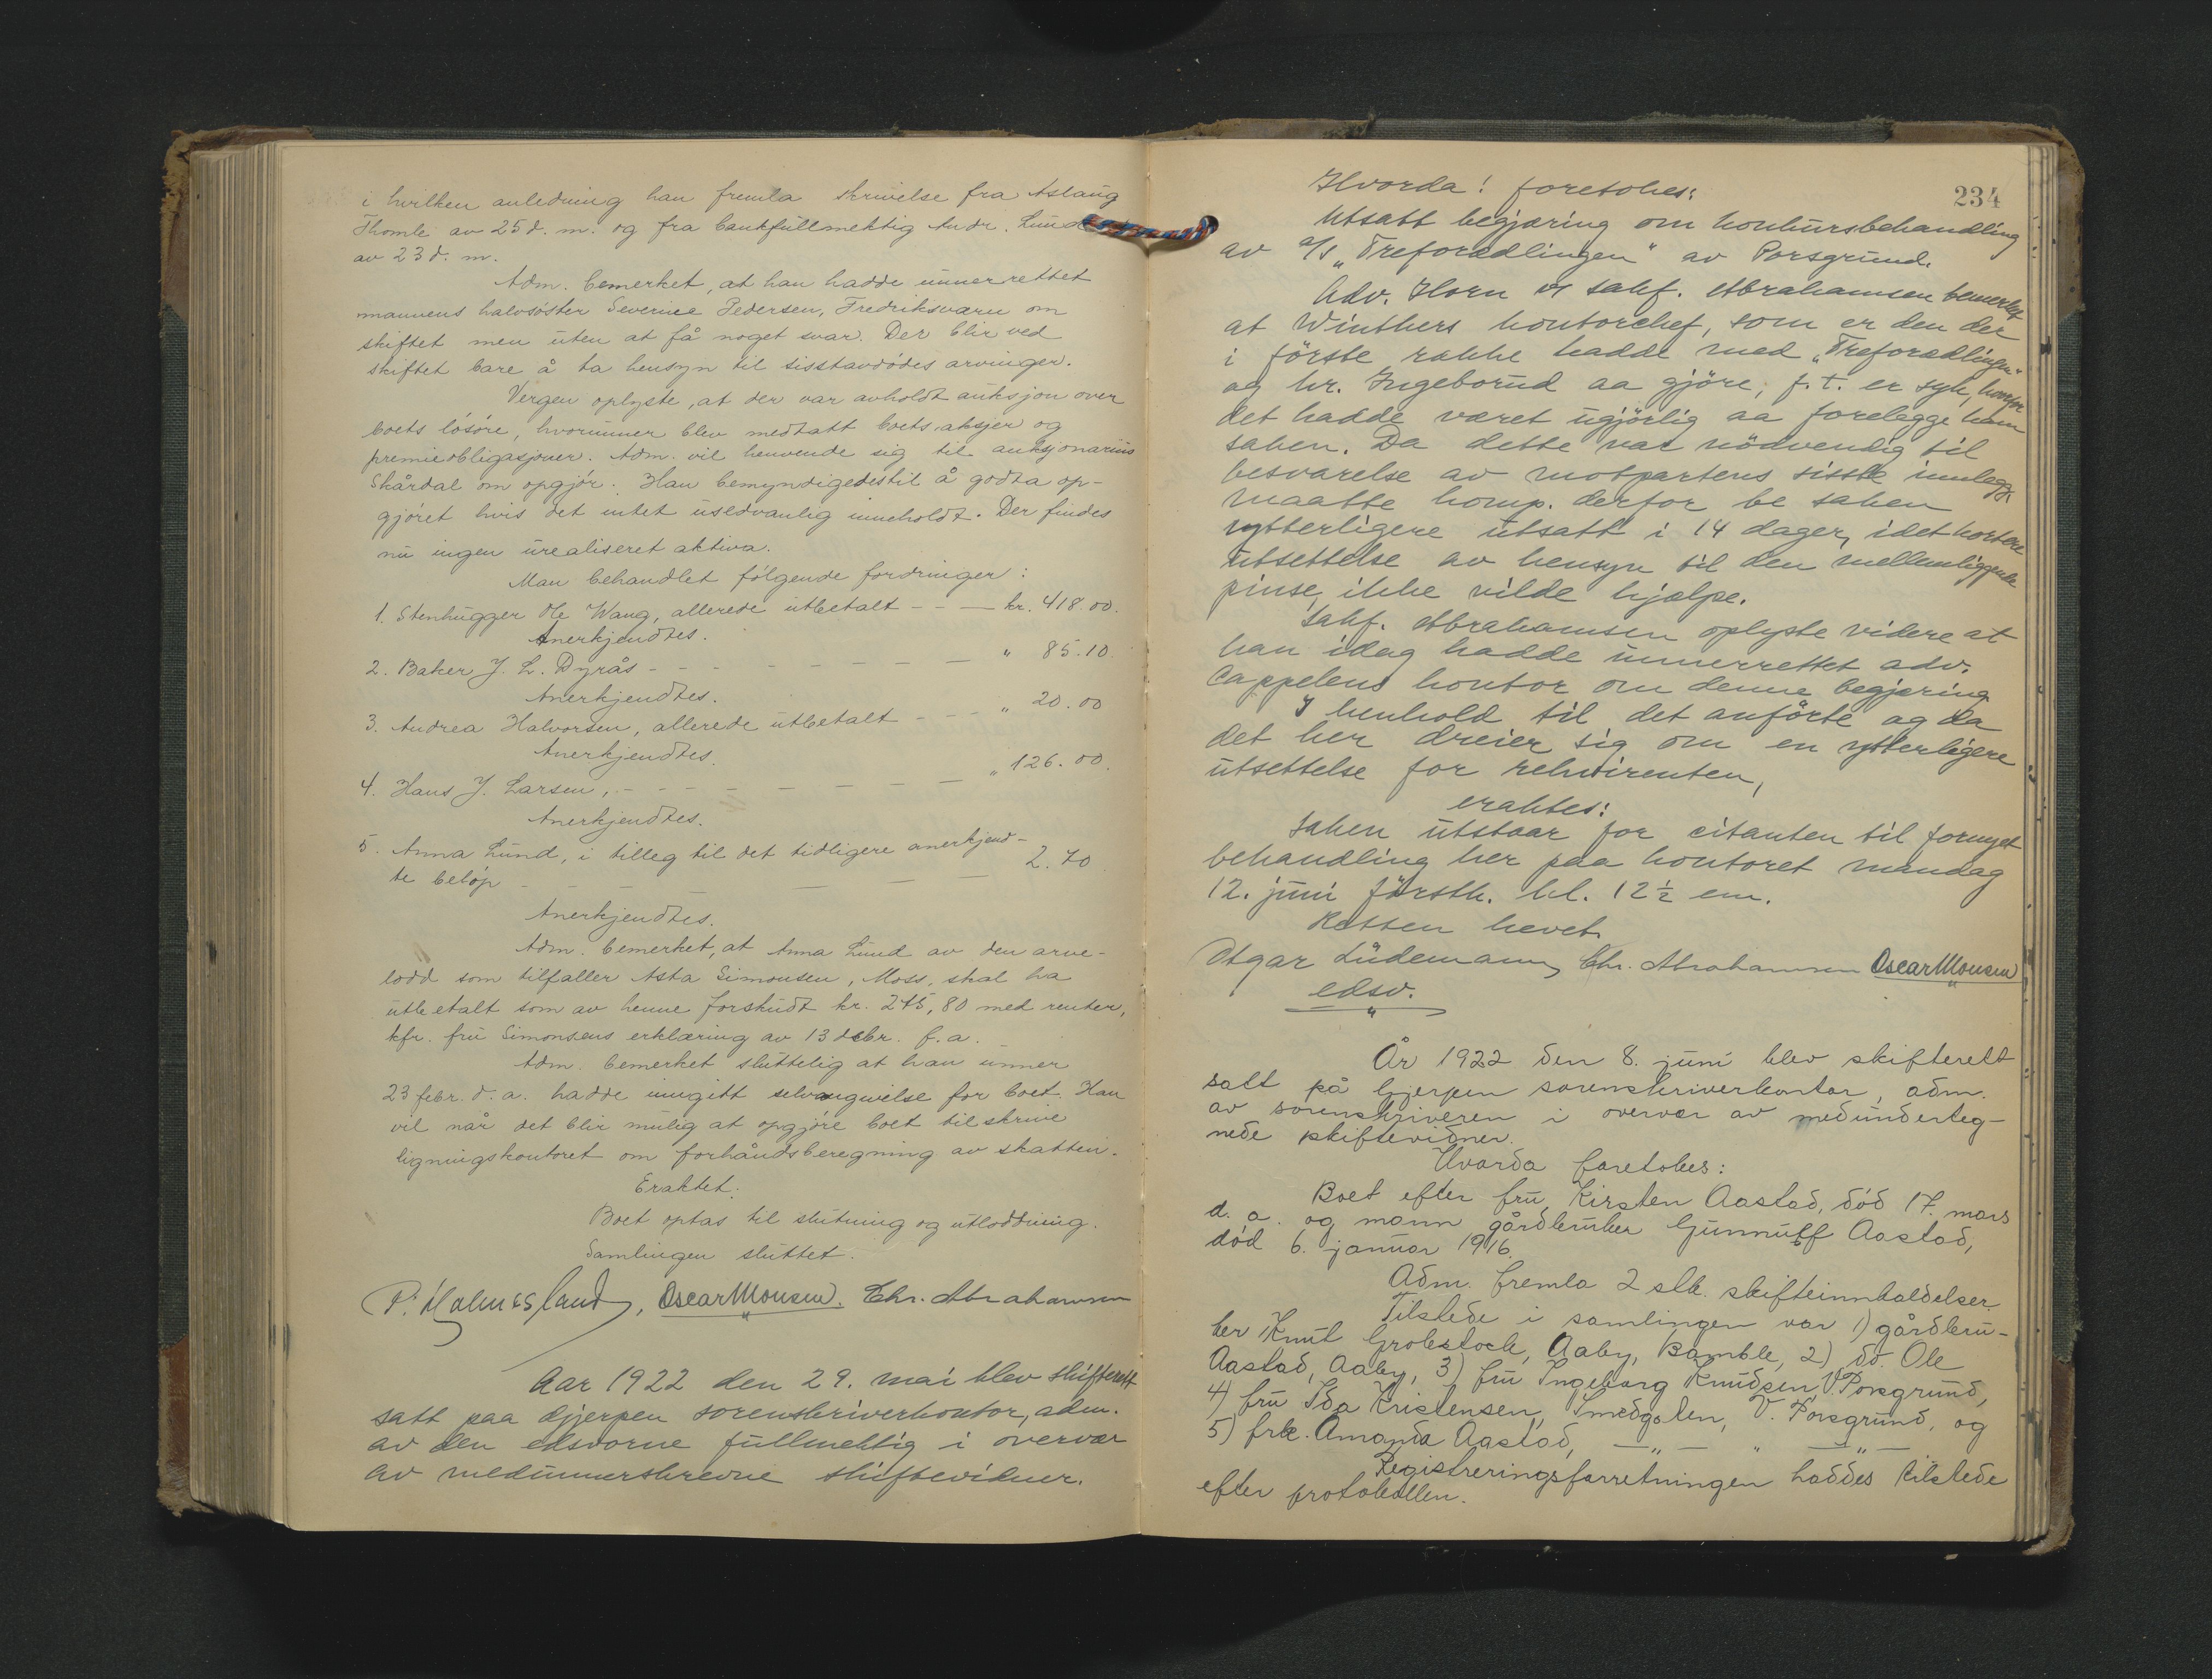 i hvilken anledning han fremla skrivelse fra Aslaug
Thomle av 25 d. m. og fra bankfullmektig Andr. Lund
av 23 d. m.
Adm. bemerket, at han hadde unnerrettet
mannens halvsøster Severine Pedersen, Fredriksværn om
skiftet men uten at få noget svar. Der blir ved
skiftet bare å ta hensyn til sisstavdødes arvinger.
Vergen oplyste, at der var avholdt auksjon over
boets løsøre, hvorunner blev medtatt boets aksjer og
premieobligasjoner. Adm. vil henvende sig til auksjonarius
Skårdal om opgjør. Han bemyndigedes til å godta op-
gjøret hvis det intet usedvanlig inneholdt. Der findes
nu ingen urealiseret aktiva.
Man behandlet følgende fordringer:
1. Stenhugger Ole Wang, allerede utbetalt - - - kr. 418.00.
Anerkjendtes.
2. Baker J. L. Dyrås - - - - - - - - " 85.10.
Anerkjendtes.
3. Andrea Halvorsen, allerede utbetalt - - - " 20.00
Anerkjendtes.
4. Hans J. Larsen, - - - - - - - - " 126.00.
Anerkjendtes.
5. Anna Lund, i tilleg til det tidligere anerkjend-
te beløp - - - - - - - 2.70
Anerkjendtes.
Adm. bemerket, at Anna Lund av den arve-
lodd som tilfaller Asta Simonsen, Moss, skal ha
utbetalt som av henne forskudt kr. 275,80 med renter,
kfr. fru Simonsens erklæring av 13 debr. f. a.
Adm. bemerket sluttelig at han unner
23 febr. d. a. hadde inngitt selvangivelse for boet. Han
vil når det blir mulig at opgjøre boet tilskrive
ligningskontoret om forhåndsberegning av skatten.
Eraktet:
Boet optas til slutning og utloddning.
Samlingen sluttet.
P. Holmesland, Oscar Monsen. Chr. Abrahamsen
Aar 1922 den 29. mai blev skifterett
satt paa Gjerpen sorenskriverkontor, adm.
av den edsvorne fullmektig i overvær
av medunnerskrevne skiftevidner.
234
Hvorda! foretokes:
Utsatt begjæring om konkursbehandling
av A/S "Treforædlingen" av Porsgrund.
Adv. Horn v/ sakf. Abrahamsen bemerket
at Winthers kontorchef, som er den der
i første række hadde med "Treforædlingen"
og hr. Ingeborud aa gjøre, f. t. er syk, hvorfor
det hadde været ugjørlig aa forelegge ham
saken. Da dette var nødvendig til
besvarelse av motpartens sisste innlegg,
maatte komp. derfor be saken
ytterligere utsatt i 14 dager, idet kortere
utsettelse av hensyn til den mellemliggende
pinse, ikke vilde hjælpe.
Sakf. Abrahamsen oplyste videre at
han idag hadde unnerrettet adv.
Cappelens kontor om denne begjæring
I henhold til det anførte og da
det her dreier sig om en ytterligere
utsettelse for rekvirenten,
eraktes:
Saken utstaar for citanten til fornyet
behandling her paa kontoret mandag
12. juni førstk. kl. 12½ em.
Retten hevet.
Otgar Lüdemann, Chr. Abrahamsen Oscar Monsen
edsv.
År 1922 den 8. juni blev skifterett
satt på Gjerpen sorenskriverkontor, adm.
av sorenskriveren i overvær av medunderteg-
nede skiftevidner.
Hvorda foretokes:
Boet efter fru Kirsten Aastad, død 17. mars
d. a. og mann gårdbruker Gunnulf Aastad,
død 6. januar 1916.
Adm. fremla 2 stk. skifteinnkaldelser.
Tilstede i samlingen var 1) gårdbru-
ker Knut Grobstock, Aaby, Bamble, 2) do. Ole
Aastad, Aaby, 3) fru Ingeborg Knudsen, V. Porsgrund,
4) fru Ida Kristensen, Smedgaten, V. Porsgrund, og
5) frk. Amanda Aastad, —"— " —"—
Registreringsforretningen haddes tilstede
efter protokollen.